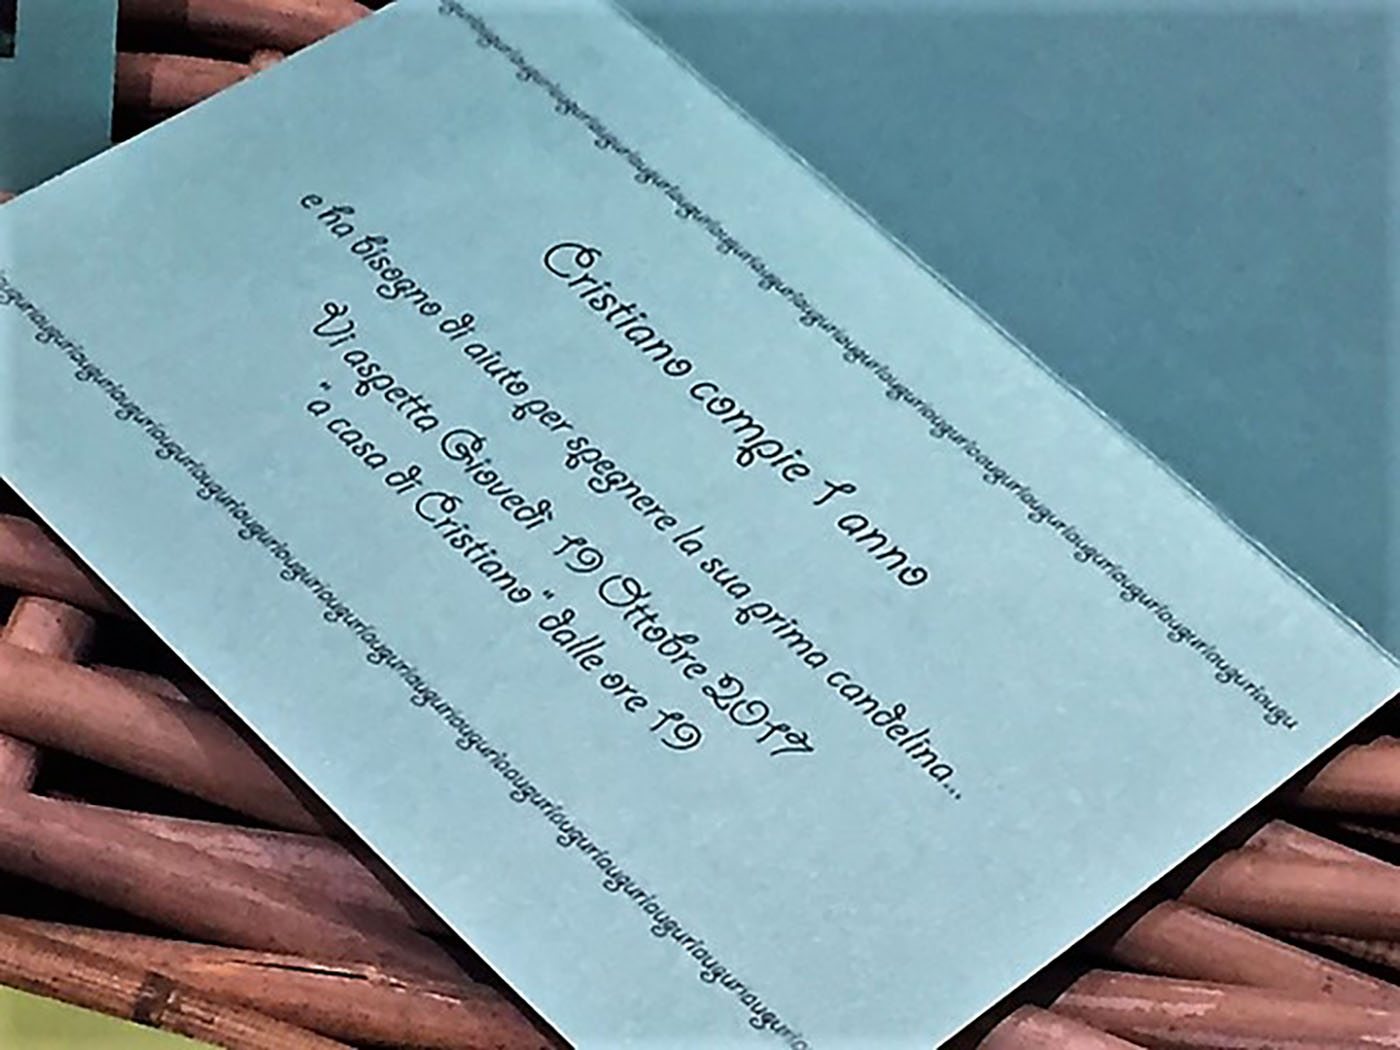 auguriauguriauguriauguriauguriauguriauguriauguriauguriauguriauguriauguriauguriauguriauguriauguriaugu
Cristiano compie 1 anno
e ha bisogno di aiuto per spegnere la sua prima candelina...
Vi aspetta Giovedì 19 Ottobre 2017
"a casa di Cristiano" dalle ore 19
auguriauguriauguriauguriauguriauguriauguriauguriauguriauguriauguriauguriauguriauguriauguriauguri